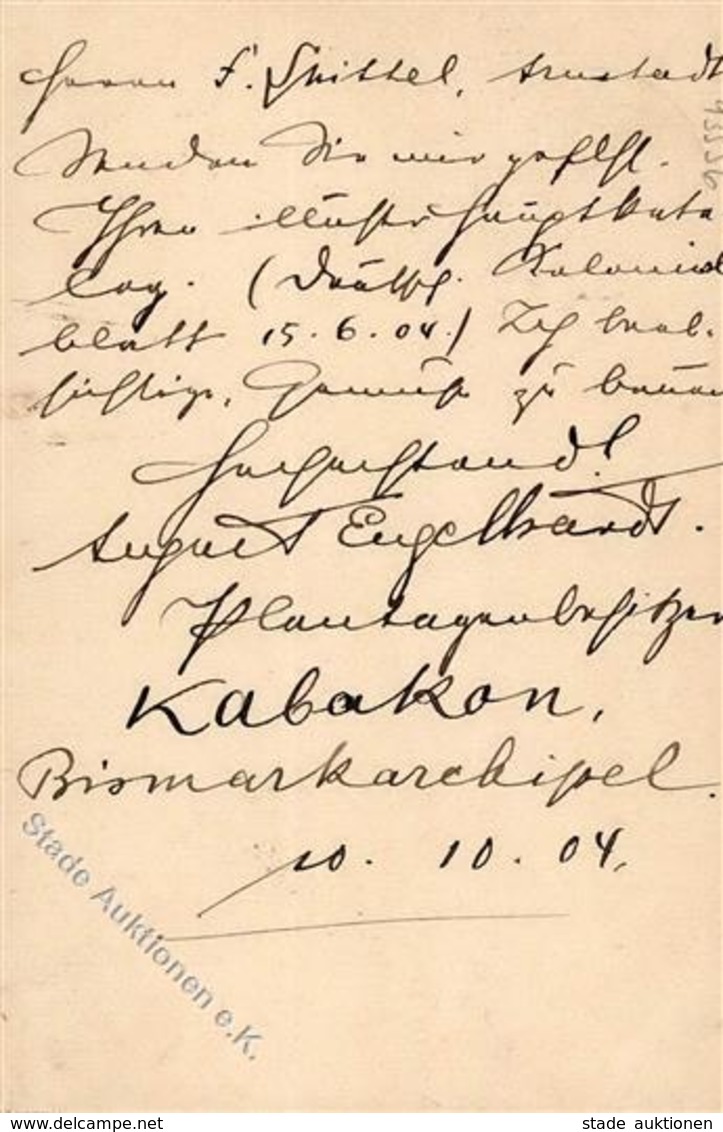 Herrn F. Spittel, Arnstadt
Senden Sie mir gefl.
Ihren illustr. Hauptkata
log. (Deutsch. Kolonial
blatt 15. 6. 04.) Ich beab-
sichtige, Gemüse zu bauen
Hochachtend!
August Engelhardt.
Plantagenbesitzer
Kabakon,
Bismarkarchipel.
10. 10. 04.
Stade Auktionen e.K.
www.delcampe.net
stade_auktionen